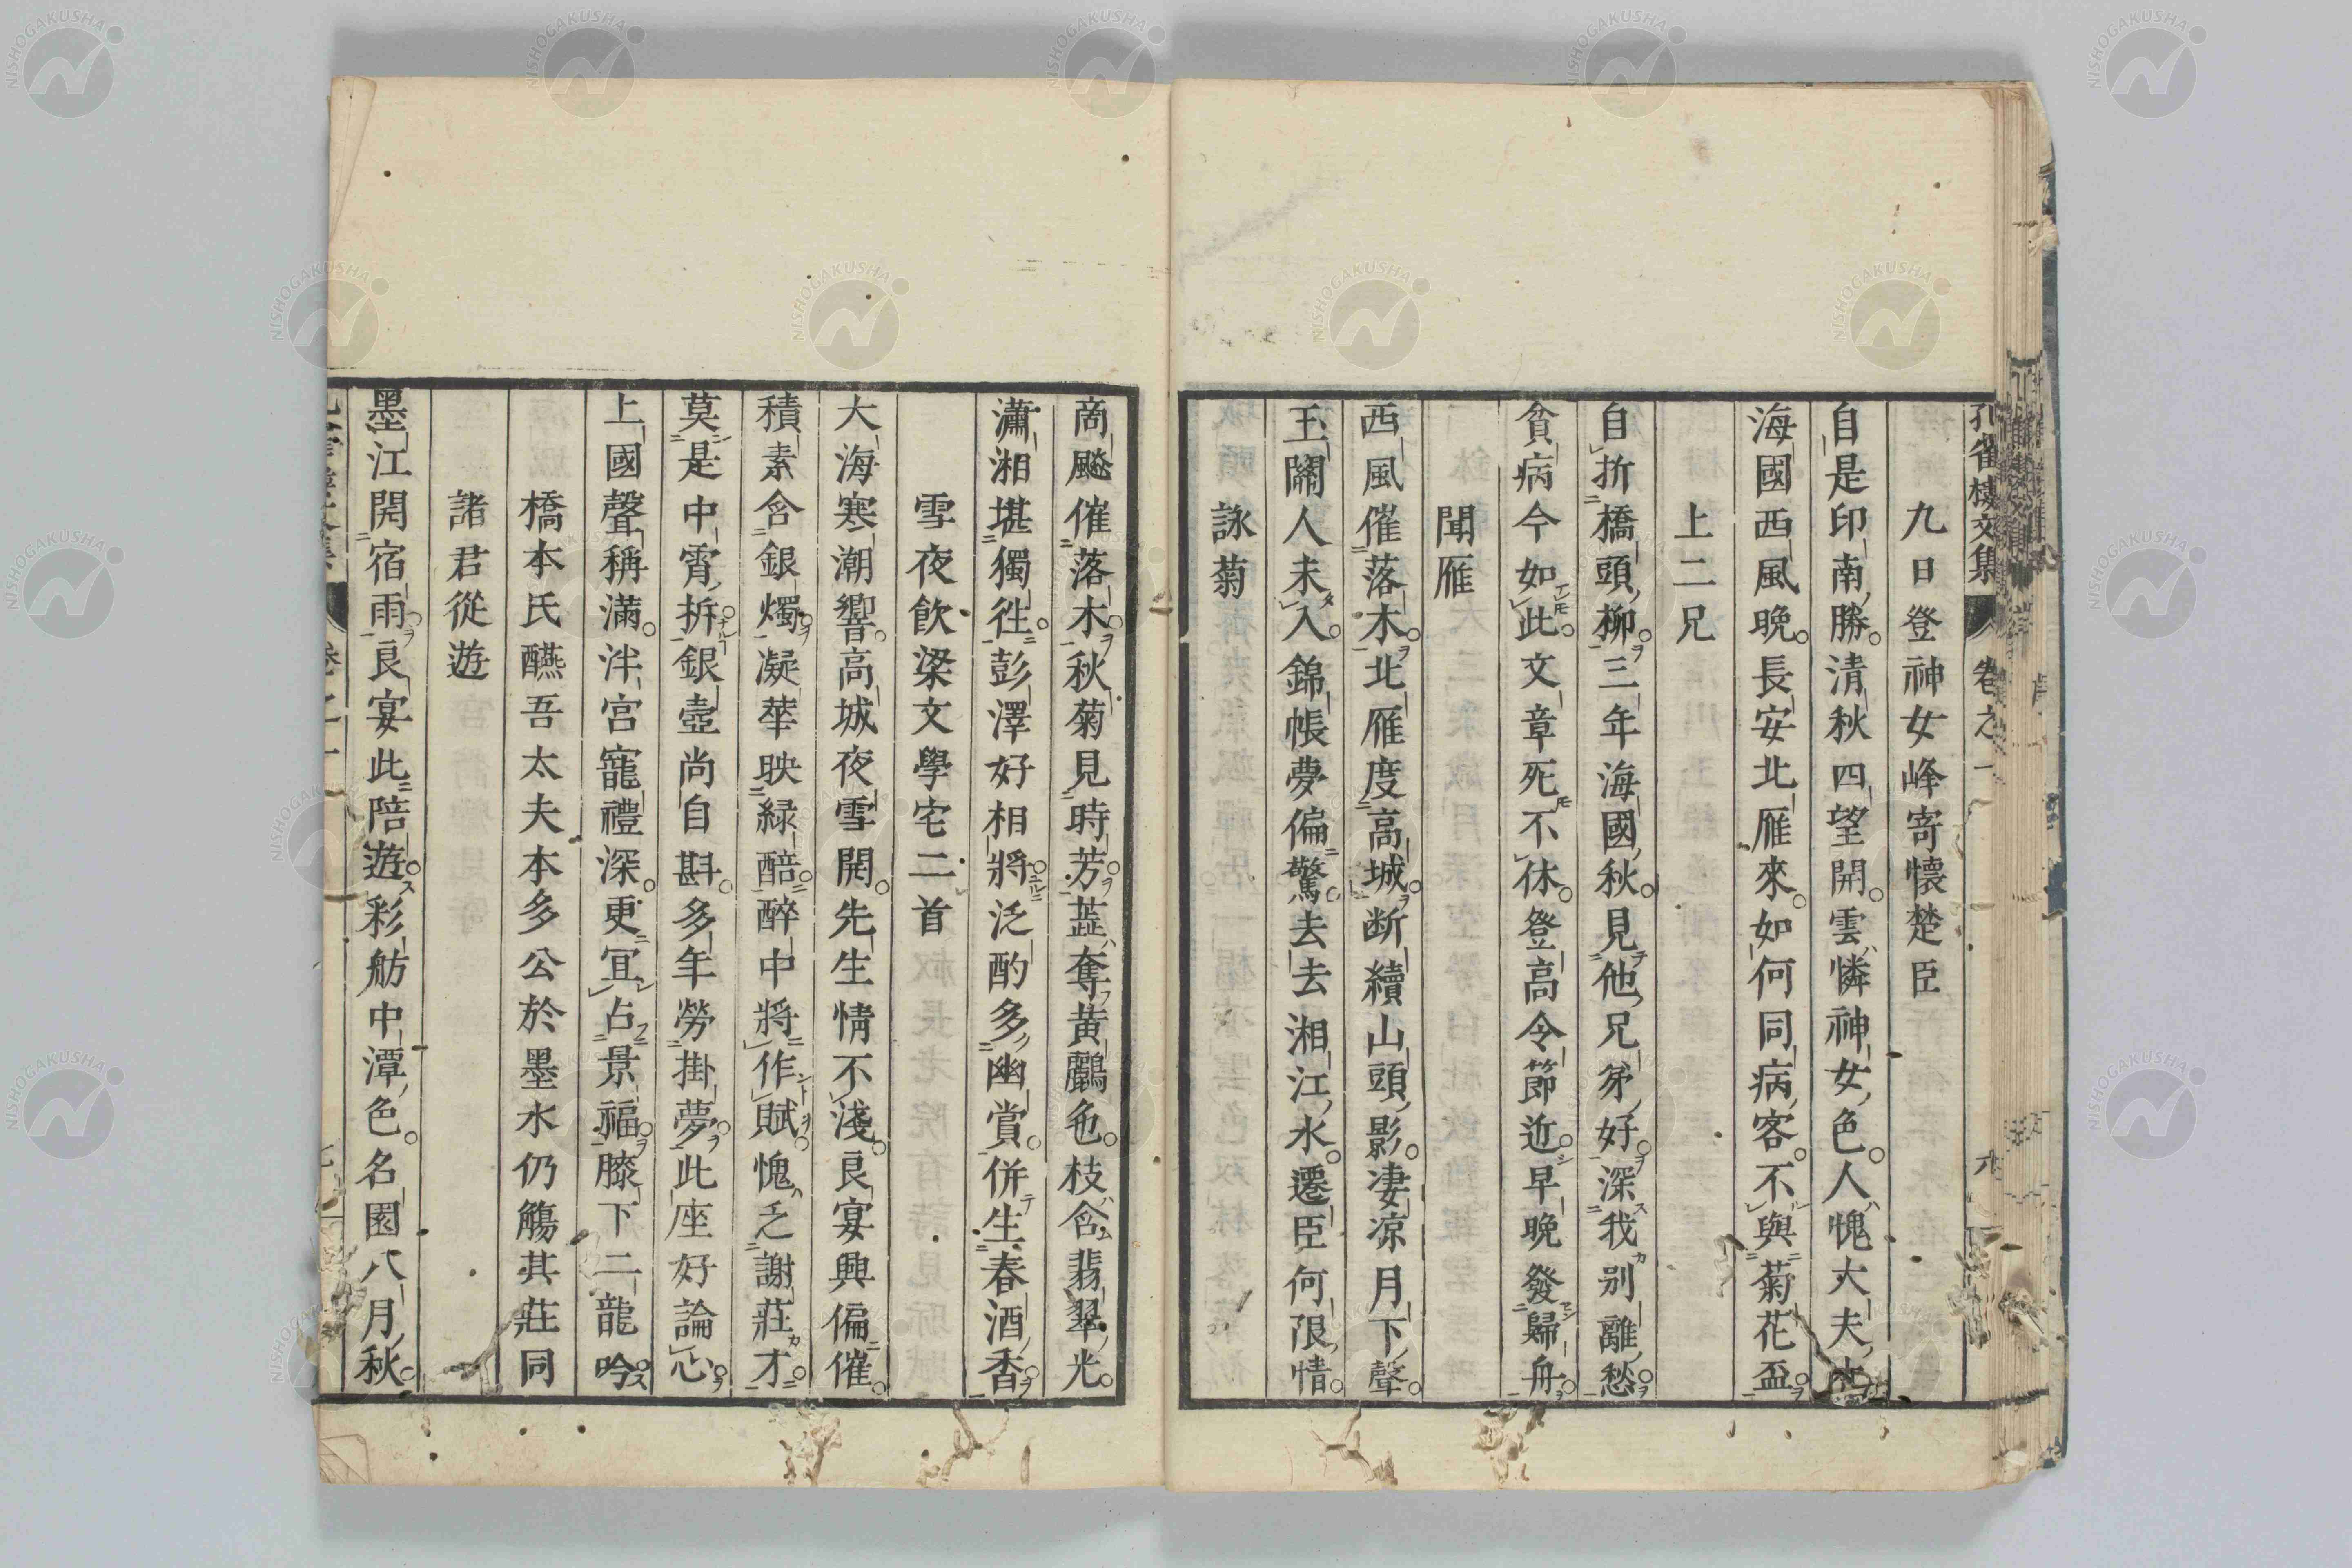 孔雀樓文集 卷之一 六
九日登神女峰寄懷楚臣
自是印南勝清秋四望開雲憐神女色人愧大夫才
海國西風晚長安北雁來如何同病客不與菊花盃
上二兄
自折橋頭柳三年海國秋見他兄弟好深我別離愁
貧病今如此文章死不休登高令節近早晚發歸舟
聞雁
西風催落木北雁度高城斷續山頭影凄凉月下聲
玉關人未入錦帳夢偏驚去去湘江水遷臣何限情
詠菊
商飈催落木秋菊見時芳蕋奪黃鸝色枝含翡翠光
瀟湘堪獨徃彭澤好相將泛酌多幽賞併生春酒香
雪夜飲梁文學宅二首
大海寒潮響高城夜雪開先生情不淺良宴興偏催
積素含銀燭凝華映緑醅醉中將作賦愧乏謝莊才
莫是中霄拆銀壺尚自斟多年勞掛夢此座好論心
上國聲稱滿泮宮寵禮深更冝占景福膝下二龍吟
橋本氏醼吾太夫本多公於墨水仍觴其莊同
諸君從遊
墨江開宿雨良宴此陪遊彩舫中潭色名園八月秋
NISHOGAKUSHA